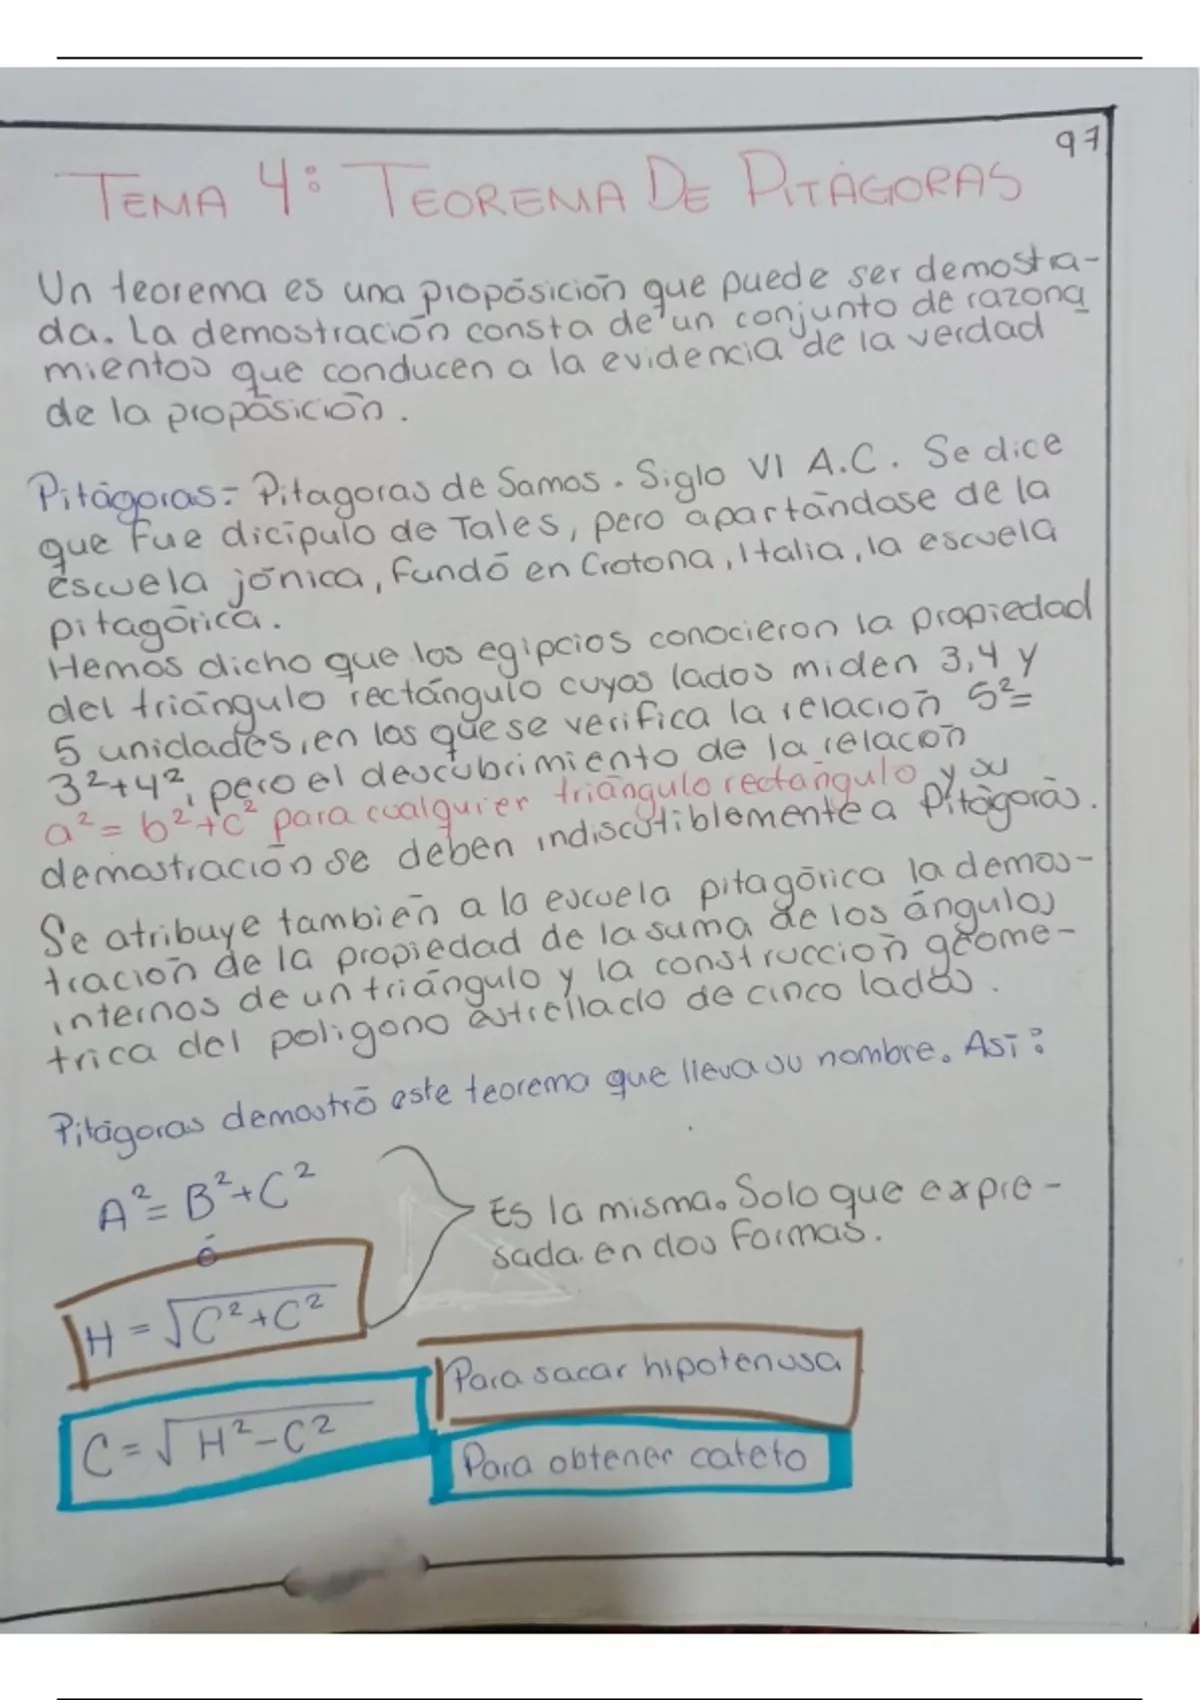 97
TEMA 4: TEOREMA DE PITÁGORAS
Un teorema es una proposición que puede ser demostra-
da. La demostración consta de un conjunto de razona
mientos que conducen a la evidencia de la verdad
de la proposición.
Pitágoras:- Pitagoras de Samos. Siglo VI A.C. Se dice
que fue dicípulo de Tales, pero apartándose de la
escuela jónica, fundó en Crotona, Italia, la escuela
pitagórica.
Hemos dicho que los egipcios conocieron la propiedad
del triángulo rectángulo cuyos lados miden 3,4 y
5 unidades, en los que se verifica la relación 5²=
3²+4², pero el descubrimiento de la relacón
a²=b²+c² para cualquier triángulo rectángulo y su
demostración se deben indiscutiblemente a Pitágoras.
Se atribuye también a la escuela pitagórica la demos-
tración de la propiedad de la suma de los ángulos
internos de un triángulo y la construcción geome-
trica del poligono estrellado de cinco lados.
Pitágoras demostró este teorema que lleva su nombre. Así:
A²=B²+C²
ó
H=√C²+C²
Es la misma. Solo que expre-
sada en dos formas.
Para sacar hipotenusa
C=√H²-C²
Para obtener cateto